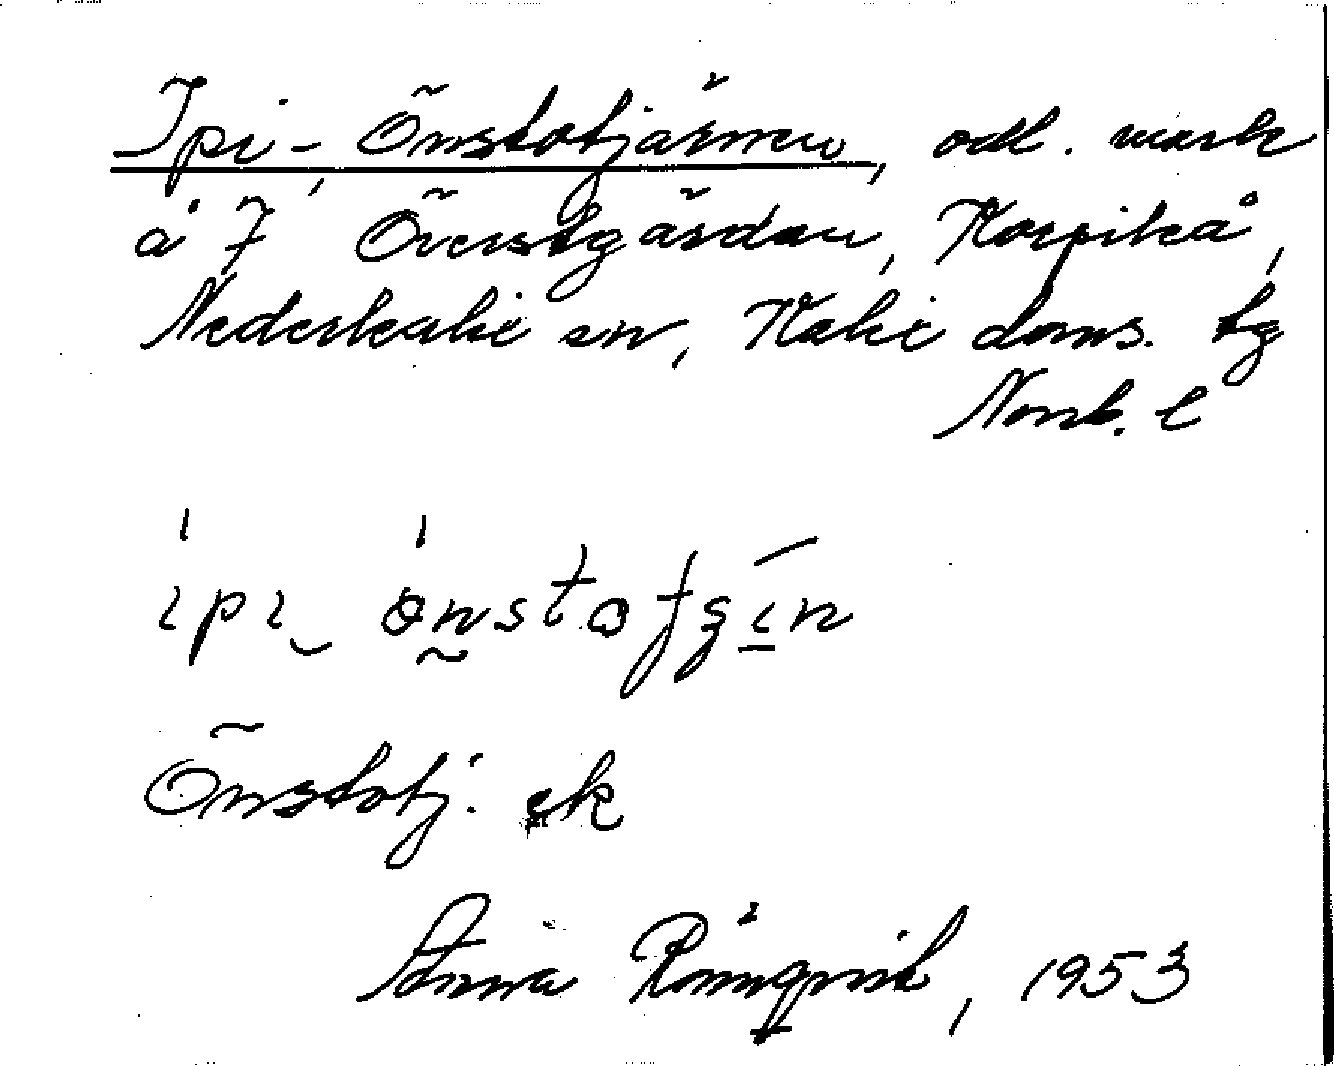 Ipi-Önstotjärnen, odl. mark
å 7 Överstgården, Korpikå,
Nederkalix sn, Kalix doms. tg
Norrb. l
ipi önstofʒin
Önstotj. ek
Anna Rönnqvist, 1953